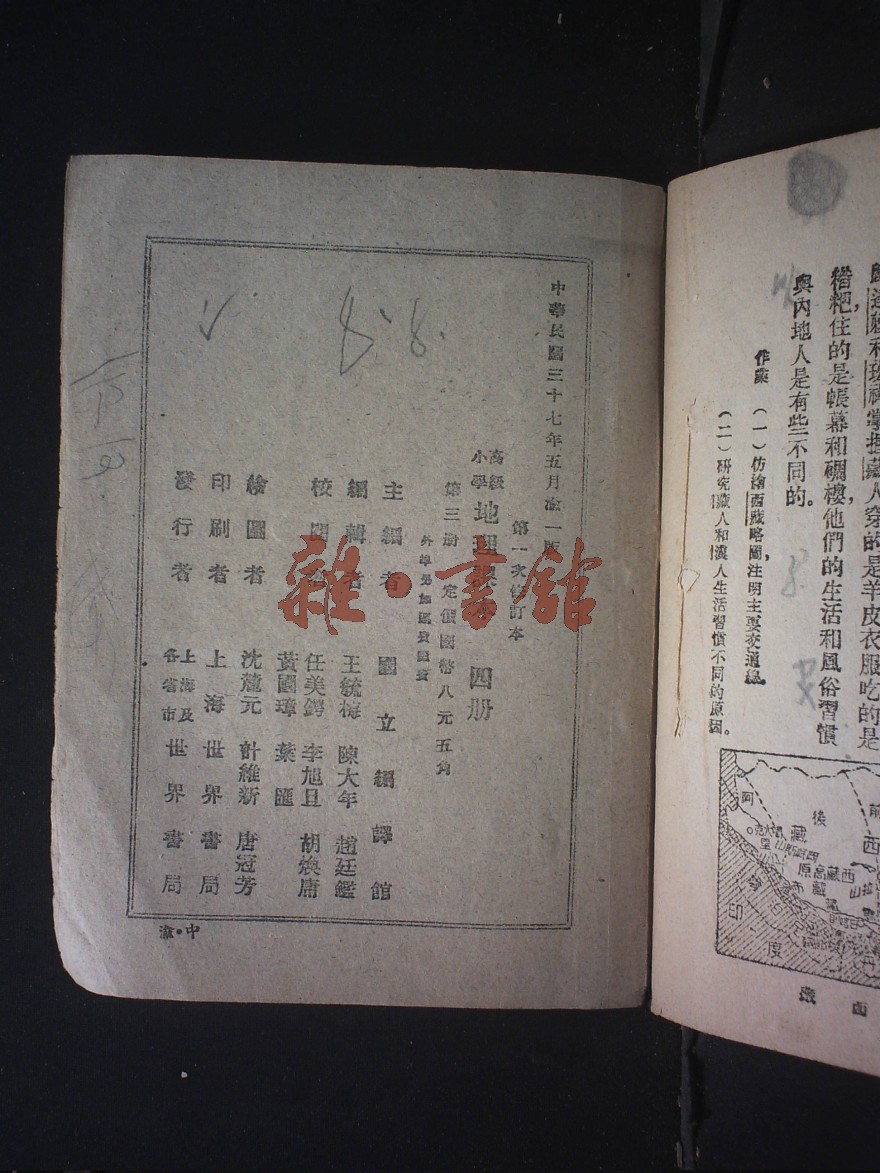 中華民國三十七年五月滬一版
第一次修訂本
高級小學 地理課本 四册
第三册 定價國幣八元五角
外埠另加運費匯費
主編者 國立編譯館
編輯者 王統梅 陳大年 趙廷鑑
校閱者 任美鍔 李旭旦 胡煥庸
黃國璋 葉匯
繪圖者 沈麓元 計維新 唐冠芳
印刷者 上海世界書局
發行者 上海及各省市世界書局
中·滬
雜·書館
歸達賴和班禪掌握藏人穿的是羊皮衣服吃的是
糌粑住的是帳幕和碉樓他們的生活和風俗習慣
與內地人是有些不同的。
作業 (一)仿繪西藏略圖注明主要交通線。
(二)研究藏人和漢人生活習慣不同的原因。
前
後
西
藏
阿里
印
度
西藏高原
西藏